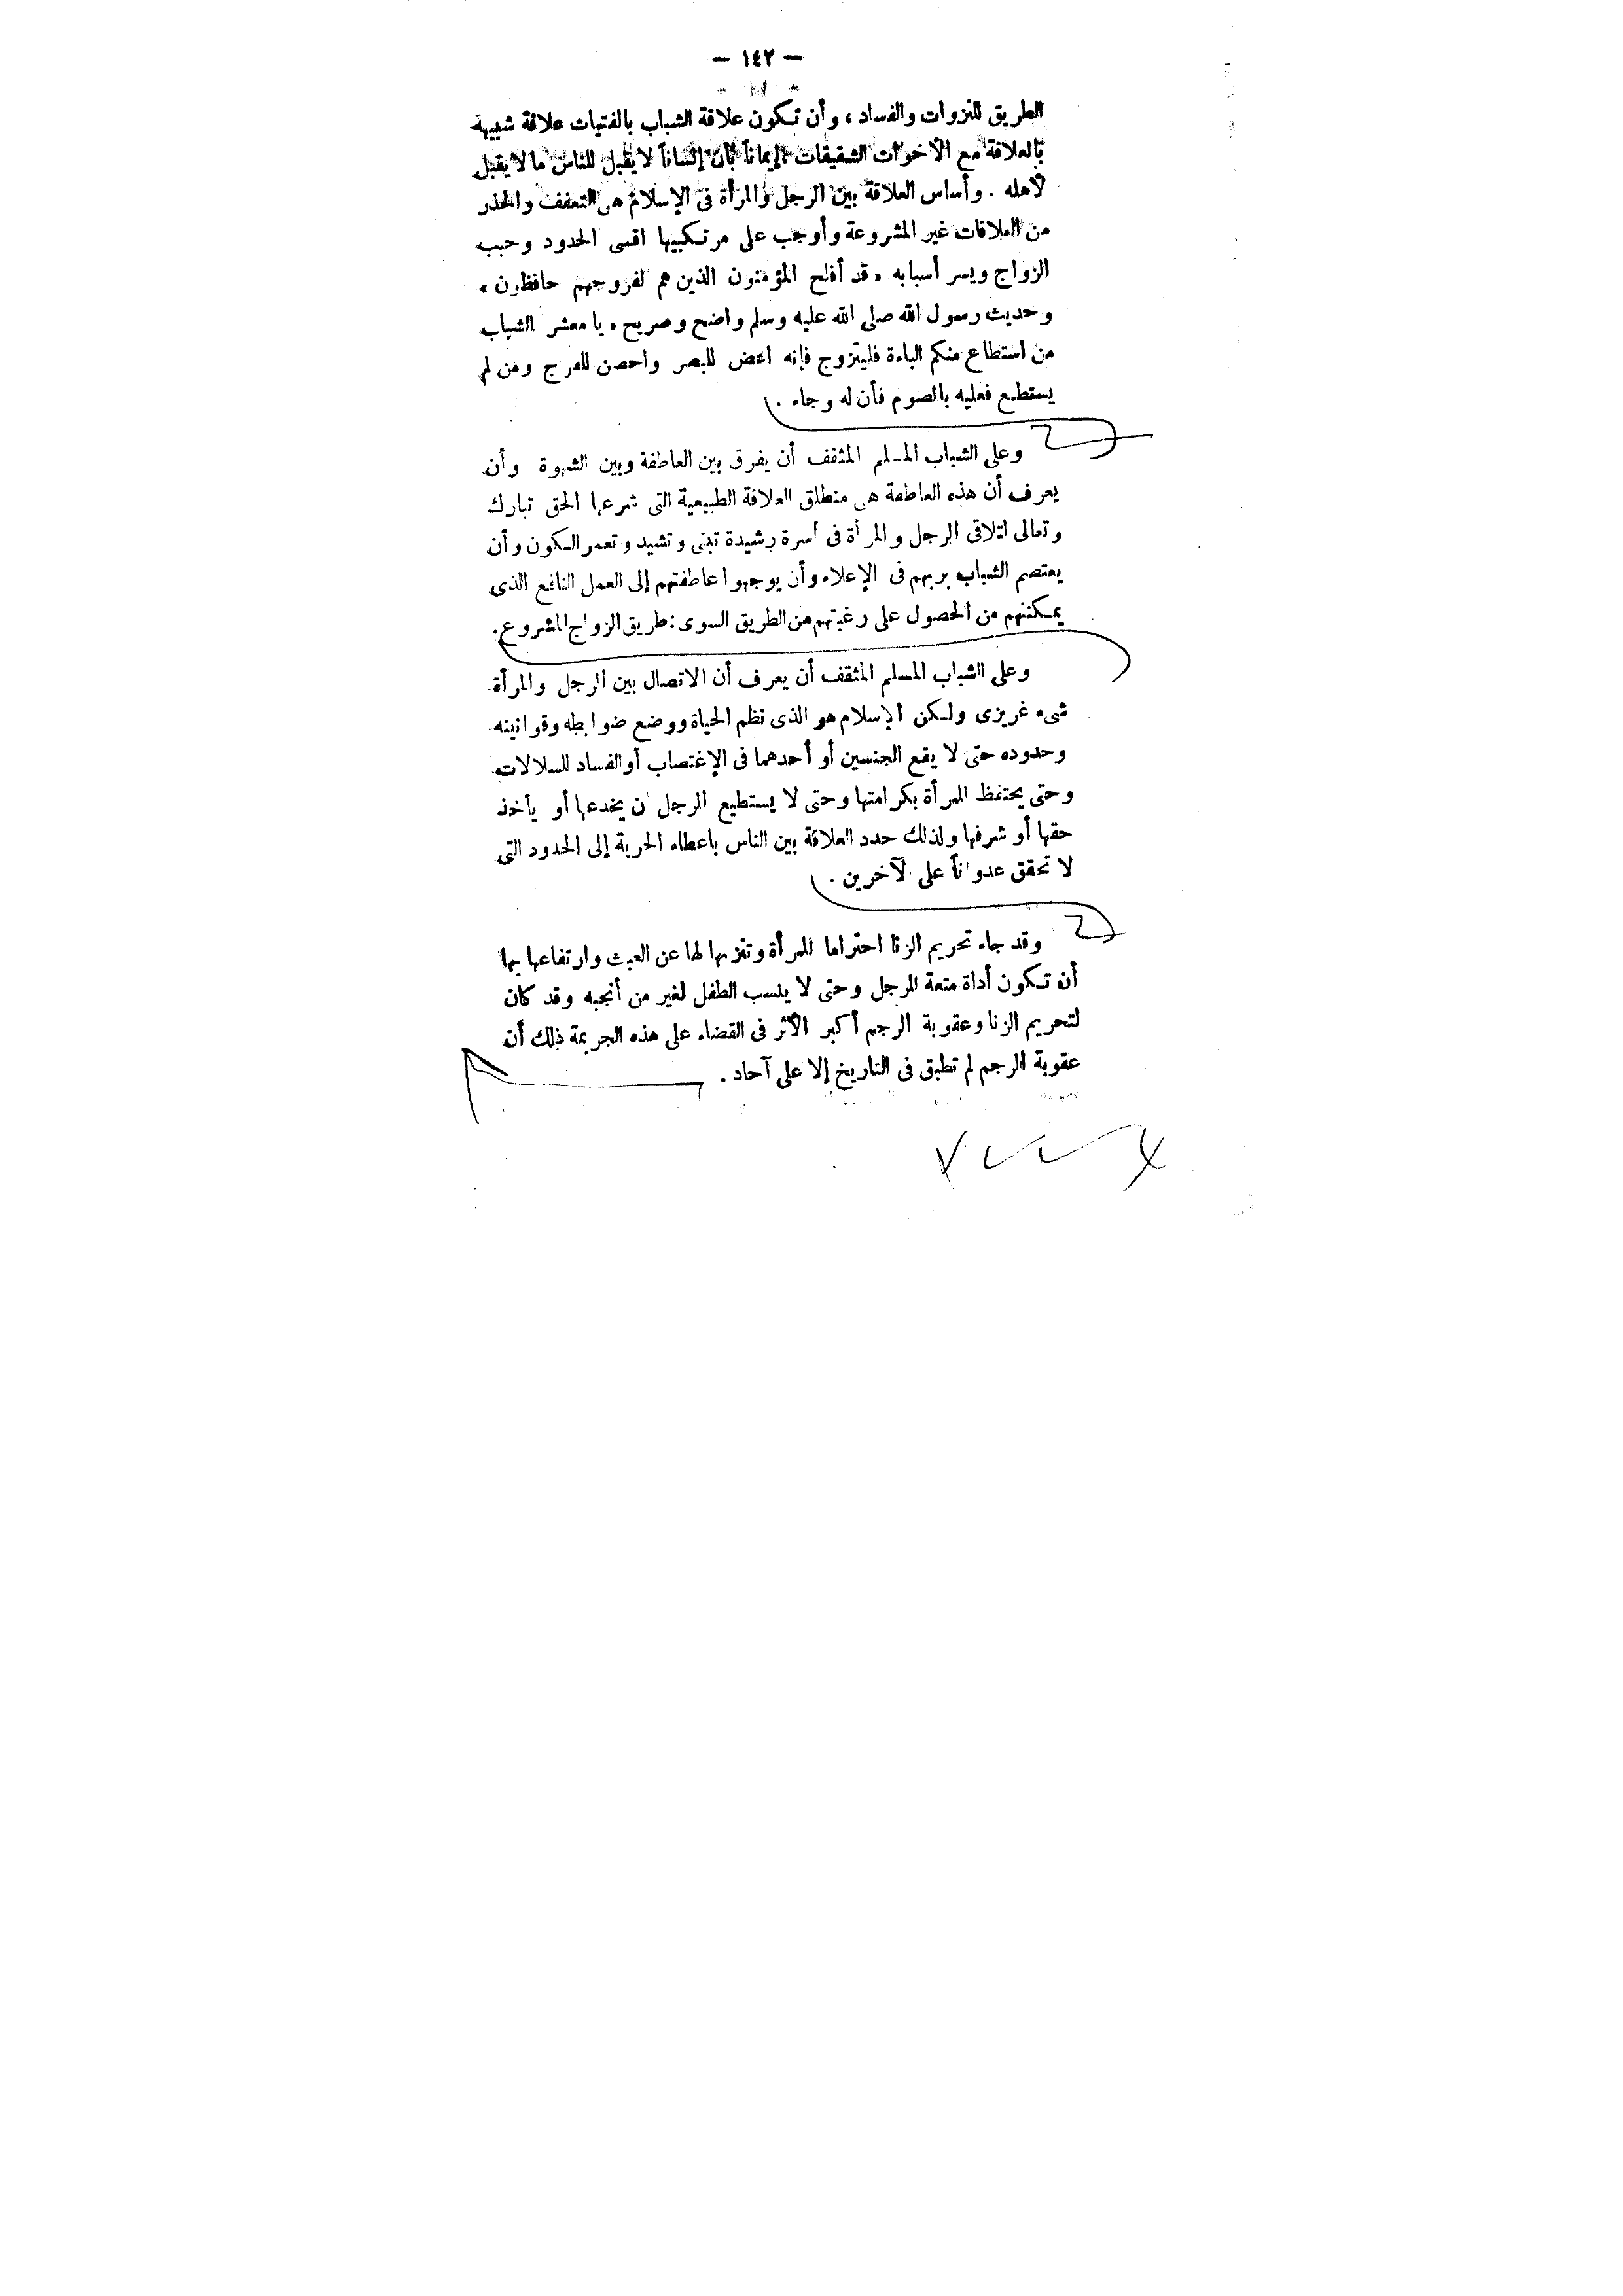 — ١٤٢ —
الطريق للنزوات والفساد ، وأن تكون علاقة الشباب بالفتيات علاقة شبيهة
بالعلاقة مع الأخوات الشقيقات إيماناً بأن إنساناً لا يقبل للناس ما لا يقبل
لأهله . وأساس العلاقة بين الرجل والمرأة فى الإسلام هى التعفف والحذر
من العلاقات غير المشروعة وأوجب على مرتكبيها اقسى الحدود وحبب
الزواج ويسر أسبابه « قد أفلح المؤمنون الذين هم لفروجهم حافظون »
وحديث رسول الله صلى الله عليه وسلم واضح وصريح « يا معشر الشباب
من استطاع منكم الباءة فليتزوج فإنه اغض للبصر واحصن للفرج ومن لم
يستطع فعليه بالصوم فأن له وجاء .
وعلى الشباب المسلم المثقف أن يفرق بين العاطفة وبين الشهوة وأن
يعرف أن هذه العاطفة هى منطلق العلاقة الطبيعية التى شرعها الحق تبارك
وتعالى لتلاقى الرجل والمرأة فى أسرة رشيدة تبنى وتشيد وتعمر الكون وأن
يعتصم الشباب بربهم فى الإعلاء وأن يوجهوا عاطفتهم إلى العمل النافع الذى
يمكنهم من الحصول على رغبتهم من الطريق السوى : طريق الزواج المشروع .
وعلى الشباب المسلم المثقف أن يعرف أن الاتصال بين الرجل والمرأة
شىء غريزى ولكن الإسلام هو الذى نظم الحياة ووضع ضوابطه وقوانينه
وحدوده حتى لا يقع الجنسين أو أحدهما فى الإغتصاب أو الفساد للسلالات
وحتى يحتفظ المرأة بكرامتها وحتى لا يستطيع الرجل أن يخدعها أو يأخذ
حقها أو شرفها ولذلك حدد العلاقة بين الناس باعطاء الحرية إلى الحدود التى
لا تحقق عدواناً على الآخرين .
وقد جاء تحريم الزنا احتراما للمرأة وتنزيها لها عن العبث وارتفاعها بها
أن تكون أداة متعة للرجل وحتى لا ينسب الطفل لغير من أنجبه وقد كان
لتحريم الزنا وعقوبة الرجم أكبر الأثر فى القضاء على هذه الجريمة ذلك أن
عقوبة الرجم لم تطبق فى التاريخ إلا على آحاد .